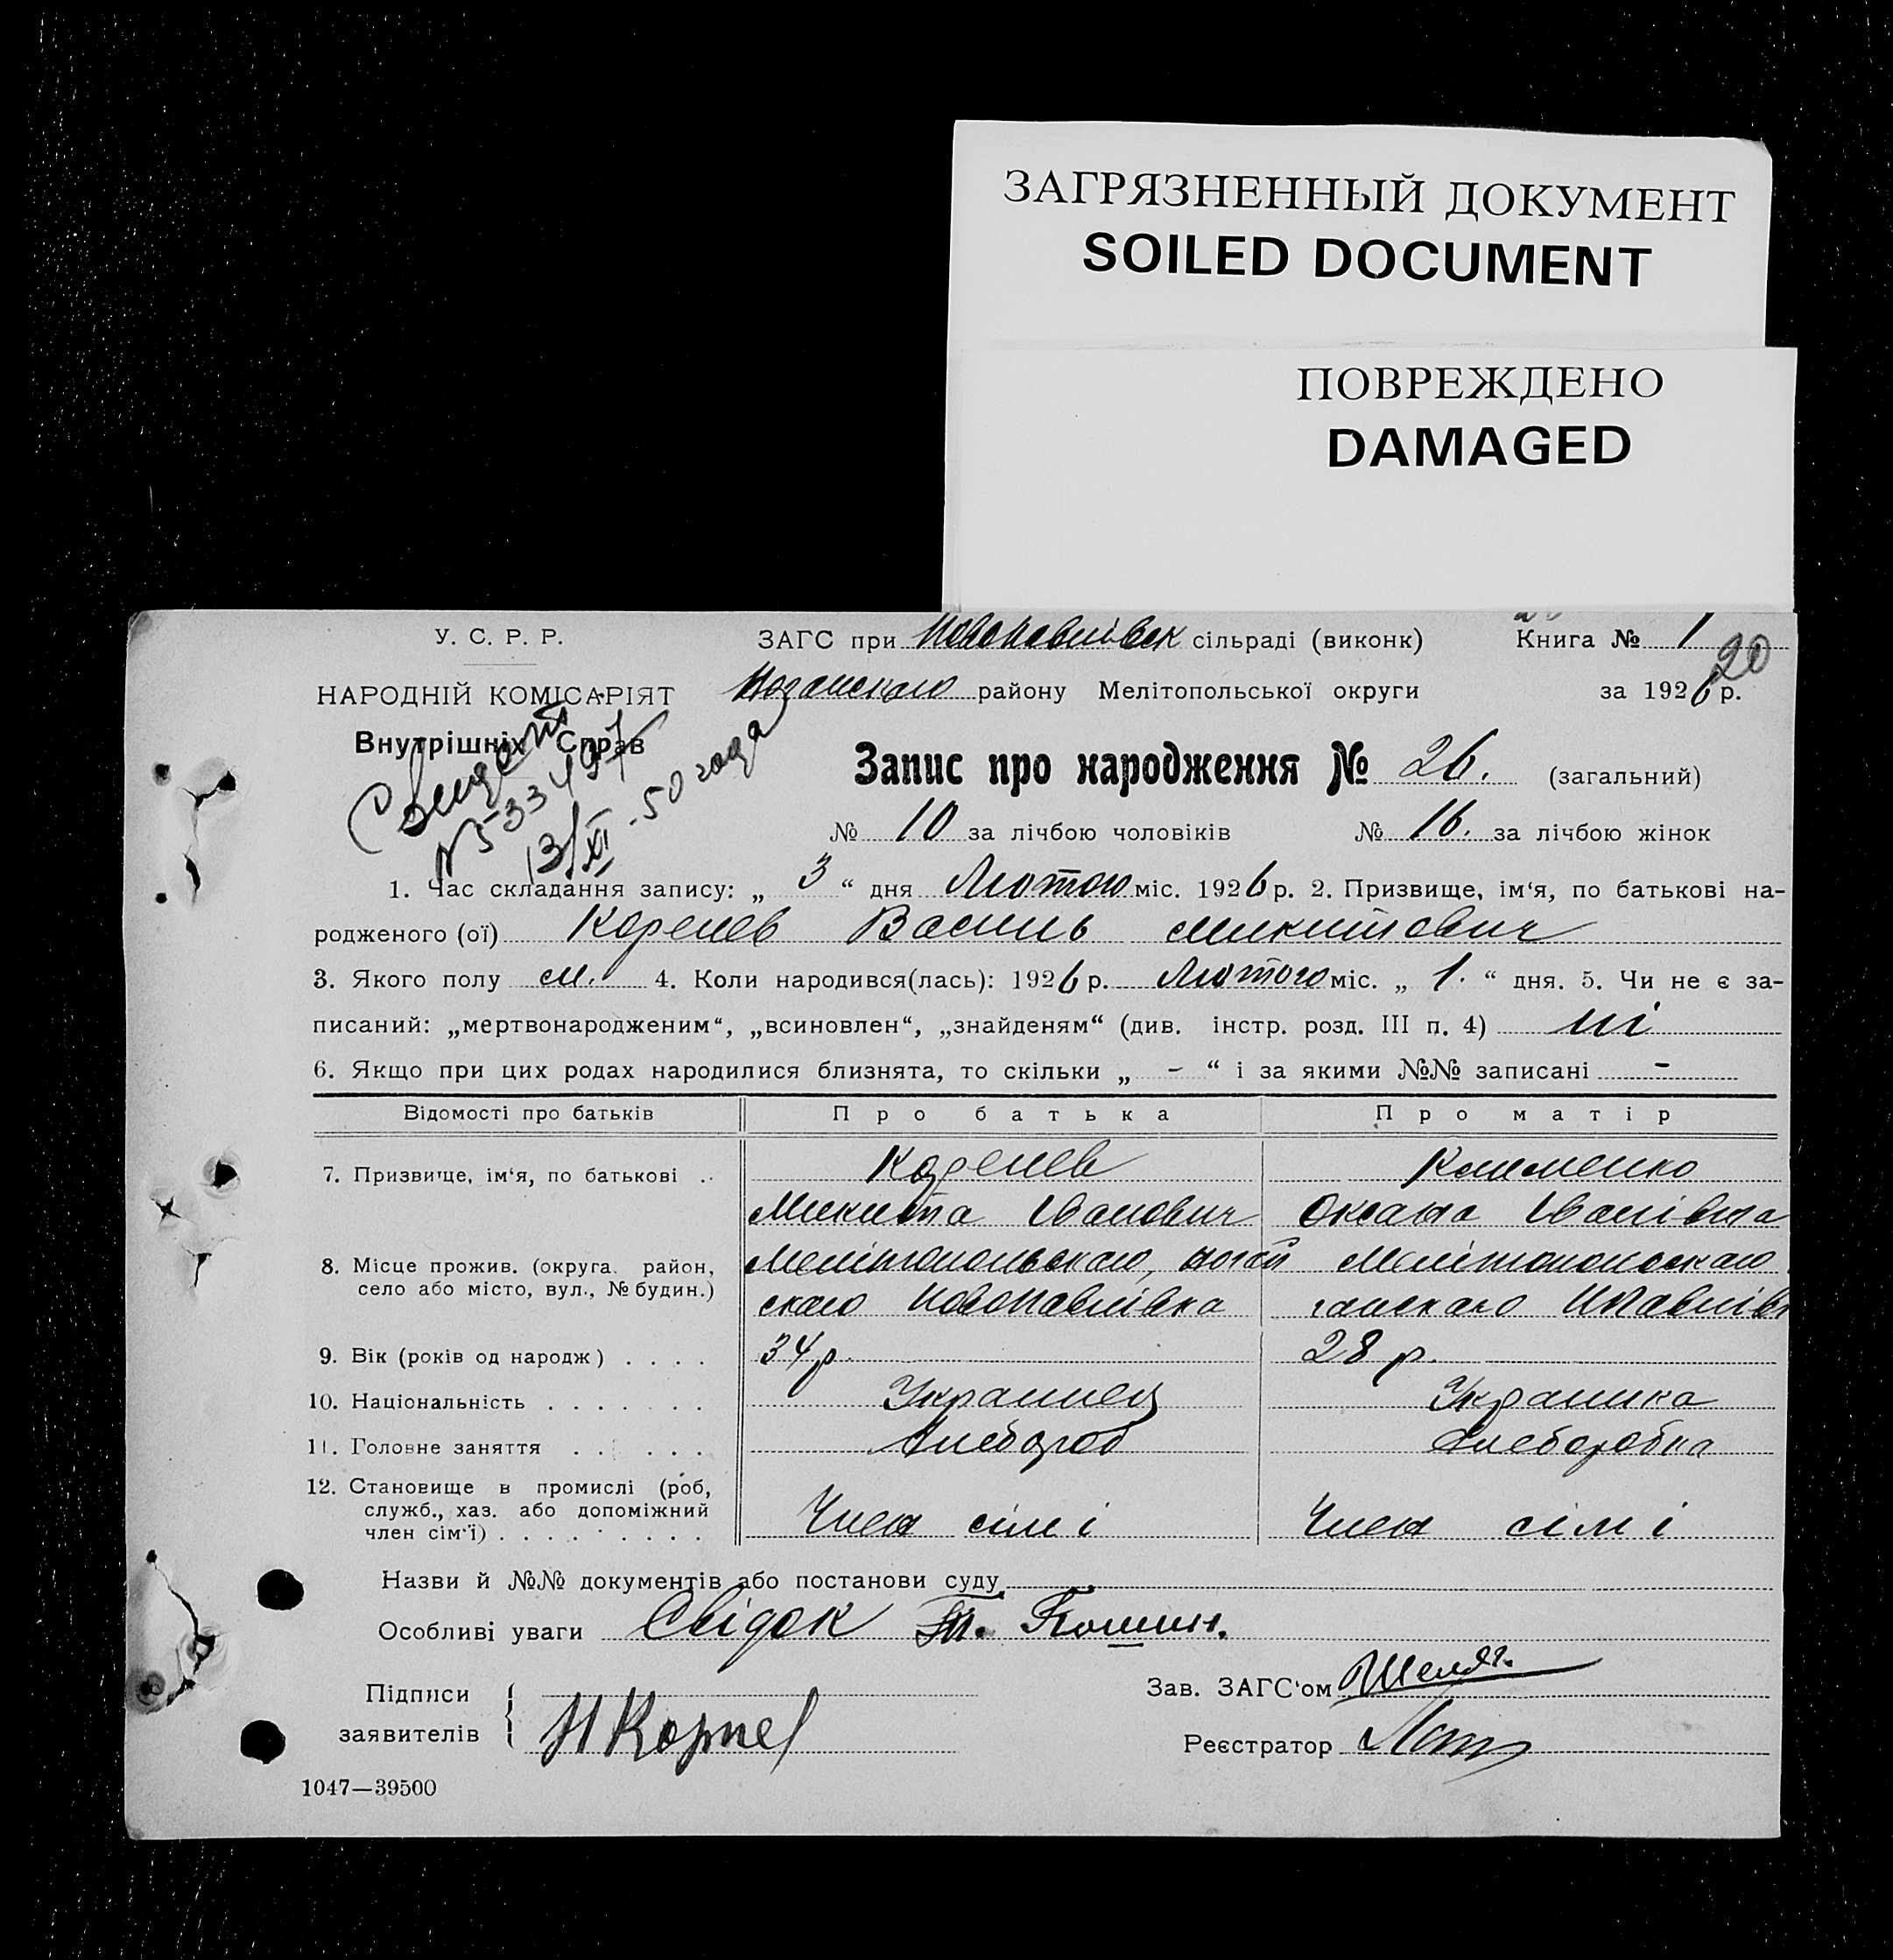 ЗАГРЯЗНЕННЫЙ ДОКУМЕНТ
SOILED DOCUMENT
ПОВРЕЖДЕНО
DAMAGED
У. С. Р. Р.
ЗАГС при Новопавлівск сільраді (виконк)
Книга № 1
20
НАРОДНІЙ КОМІСАРІЯТ
Ногайскаго району Мелітопольської округи
за 1926 р.
Внутрішніх Справ
13/XI - 50 года
Запис про народження № 26. (загальний)
№ 10 за лічбою чоловіків № 16. за лічбою жінок
1. Час складання запису: „ 3 “ дня Лютого міс. 1926 р. 2. Призвище, ім‘я, по батькові на-
родженого (ої) Коренев Василь Микитович
3. Якого полу м. 4. Коли народився(лась): 1926 р. Лютого міс. „ 1. “ дня. 5. Чи не є за-
писаний: „мертвонародженим“, „всиновлен“, „знайденям“ (див. інстр. розд. III п. 4) ні
6. Якщо при цих родах народилися близнята, то скільки „ - “ і за якими №№ записані -
Відомості про батьків
Про батька
Про матір
7. Призвище, ім‘я, по батькові ..
Коренев
Клименко
Микита Іванович
Оксана Іванівна
8. Місце прожив. (округа, район,
село або місто, вул., № будин.)
Мелітопольскаго, ногай
Мелітопольскаго
скаго Новопавлівка
гайскаго НПавлівк
9. Вік (років од народж) . . . .
34 р.
28 р.
10. Національність . . . . . . .
Украинец
Украинка
11. Головне заняття . . . . . .
Хлебороб
Хлеборобка
12. Становище в промислі (роб,
служб., хаз. або допоміжний
член сім‘ї) . . . . . . . . .
Член сімі
Член сімі
Назви й №№ документів або постанови суду
Особливі уваги Свідок
Підписи
заявителів
Н Корнев
Зав. ЗАГС‘ом
Реєстратор
1047—39500